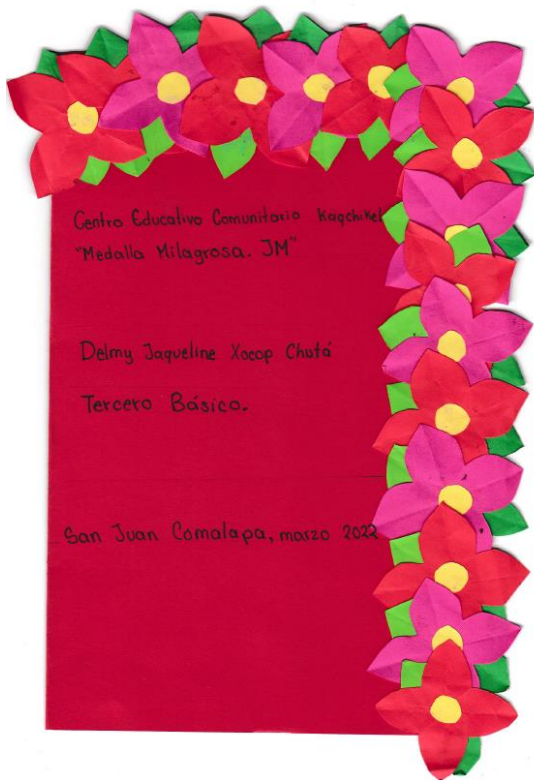 Centro Educativo Comunitario Kaqchikel
"Medalla Milagrosa. JM"
Delmy Jaqueline Xocop Chutá
Tercero Básico.
San Juan Comalapa, marzo 2022